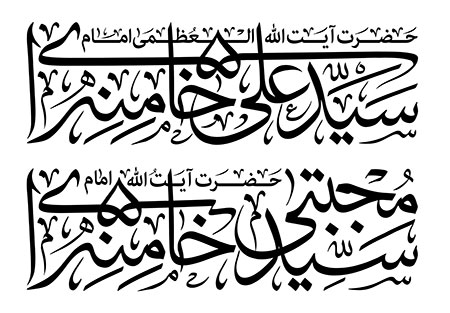 حضرت آیت الله العظمی امام
سیّد علی خامنه‌ای
حضرت آیت الله امام
سیّد مجتبی خامنه‌ای